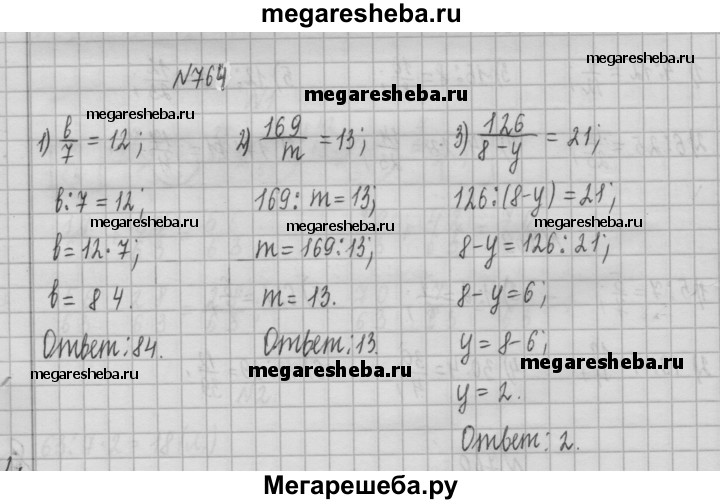 megaresheba.ru
megaresheba.ru
№764
megaresheba.ru
megaresheba.ru
1) в/7 = 12;
в:7 = 12;
megaresheba.ru
в = 12·7;
в = 84.
Ответ: 84.
megaresheba.ru
2) 169/m = 13;
169: m = 13;
megaresheba.ru
m = 169:13;
m = 13.
Ответ: 13.
megaresheba.ru
3) 126/8-y = 21;
126:(8-y) = 21;
megaresheba.ru
8-y = 126:21;
8-y = 6;
y = 8-6;
megaresheba.ru
y = 2.
Ответ: 2.
Мегарешеба.ру